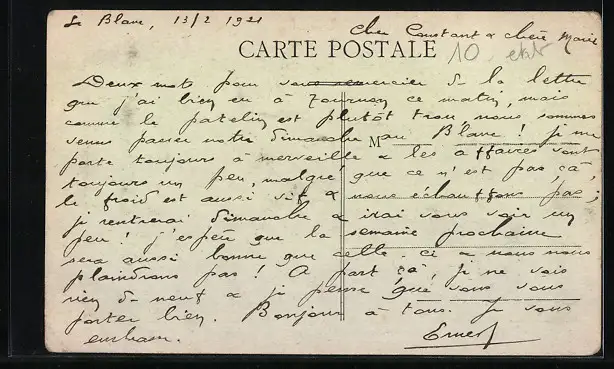 Le Blanc, 13/2 1921
Cher Constant & chère Marie
CARTE POSTALE
10
Deux mots pour vous remercier de la lettre
que j'ai bien eu à Tournon ce matin, mais
comme le patelin est plutôt trou, nous sommes
venus passer notre dimanche au Blanc ! Je me
M
porte toujours à merveille & les affaires vont
toujours un peu, malgré que ce n'est pas ça,
le froid est aussi vif & nous échauffons pas ;
je rentrerai dimanche & irai vous voir un
peu ! j'espère que la semaine prochaine
sera aussi bonne que celle-ci & nous nous
plaindrons pas ! A part ça, je ne vois
rien de neuf & je pense que vous vous
porter bien. Bonjour à tous. Je vous
embrasse.
Ernest